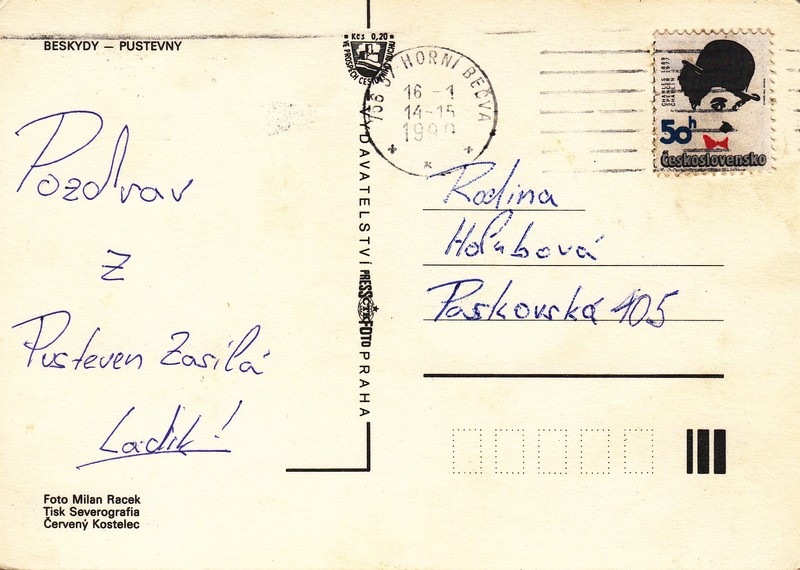 BESKYDY — PUSTEVNY
Pozdrav
z
Pusteven Zasílá
Ladík!
Foto Milan Racek
Tisk Severografia
Červený Kostelec
Kčs 0,20
VE PROSPĚCH
VYDAVATELSTVÍ PRESSFOTO PRAHA
756 57 HORNÍ BEČVA
16 -1
14-15
1990
CHARLES
SPENCER
CHAPLIN
50h
Československo
Rodina
Holubová
Paskovská 105